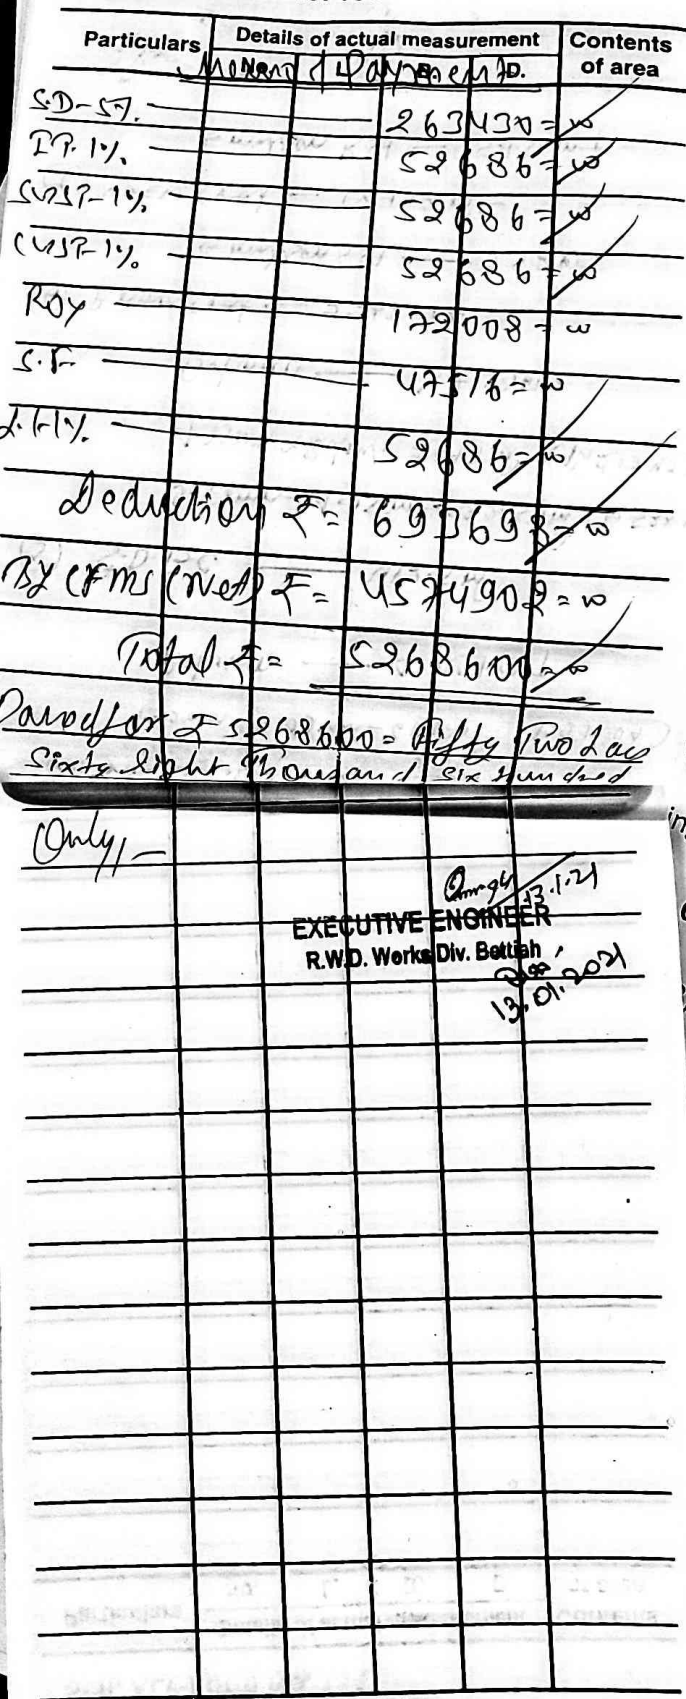 Particulars Details of actual measurement Contents of area
Memo of Payment D.
S.D-5%. 263430=00
IT. 1%. 52686=00
SGST-1%. 52686=00
CGST-1%. 52686=00
Roy 172008=00
S.F. 47516=00
L.C-1%. 52686=00
Deduction ₹= 693698=00
By CFMS (Net) ₹= 4574902=00
Total ₹= 5268600=00
Passed for ₹ 5268600= Fifty Two Lacs
Sixty Eight Thousand Six Hundred
Only//-
13.1.21
EXECUTIVE ENGINEER
R.W.D. Works Div. Bettiah
13.01.2021